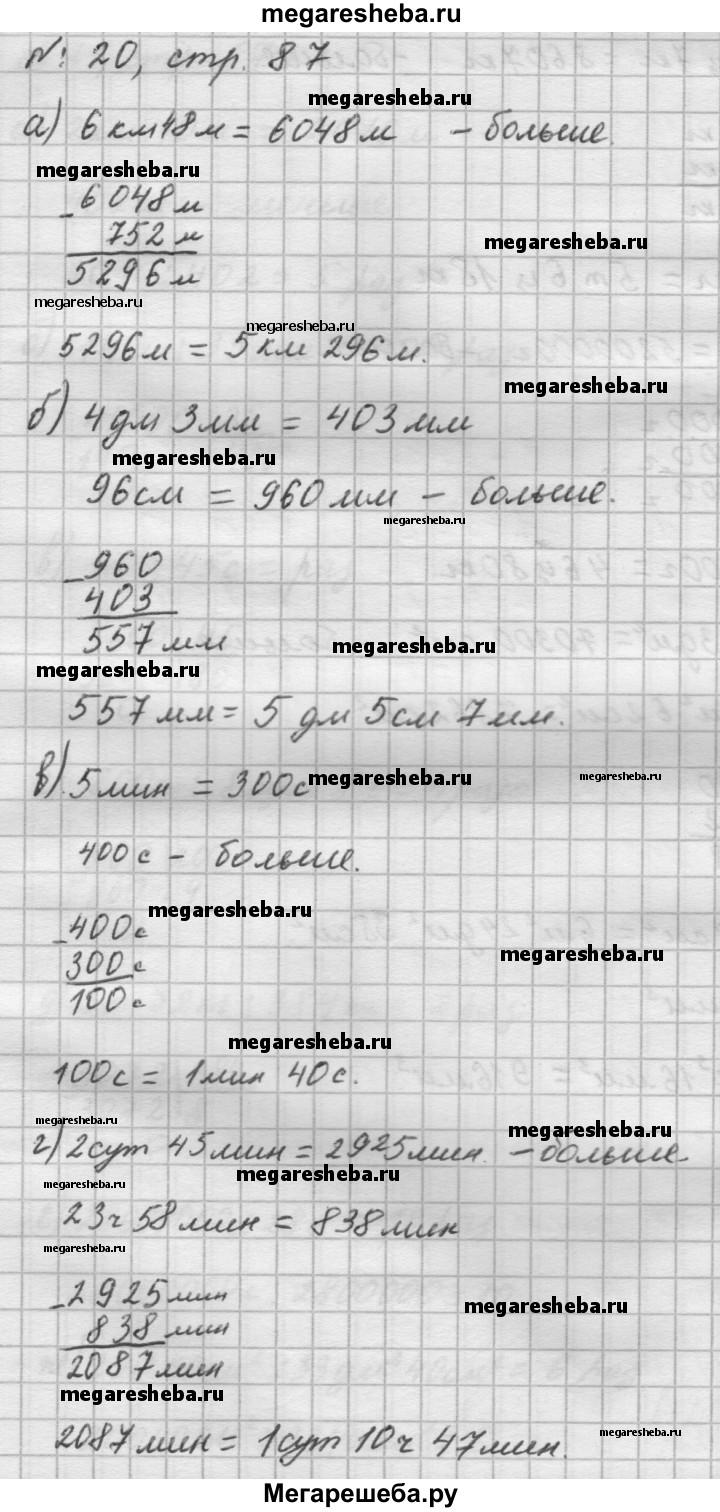 megaresheba.ru
№ 20, стр. 87
megaresheba.ru
а) 6 км 48 м = 6048 м - больше.
megaresheba.ru
- 6048 м
752 м
megaresheba.ru
5296 м
megaresheba.ru
megaresheba.ru
5296 м = 5 км 296 м.
megaresheba.ru
б) 4 дм 3 мм = 403 мм
megaresheba.ru
96 см = 960 мм - больше.
megaresheba.ru
- 960
403
557 мм
megaresheba.ru
megaresheba.ru
557 мм = 5 дм 5 см 7 мм.
в) 5 мин = 300 с
megaresheba.ru
megaresheba.ru
400 с - больше.
megaresheba.ru
- 400 с
megaresheba.ru
300 с
100 с
megaresheba.ru
100 с = 1 мин 40 с.
megaresheba.ru
megaresheba.ru
г) 2 сут 45 мин = 2925 мин. - больше
megaresheba.ru
megaresheba.ru
23 ч 58 мин = 838 мин
megaresheba.ru
- 2925 мин
megaresheba.ru
838 мин
2087 мин
megaresheba.ru
2087 мин = 1 сут 10 ч 47 мин.
megaresheba.ru
Мегарешеба.ру